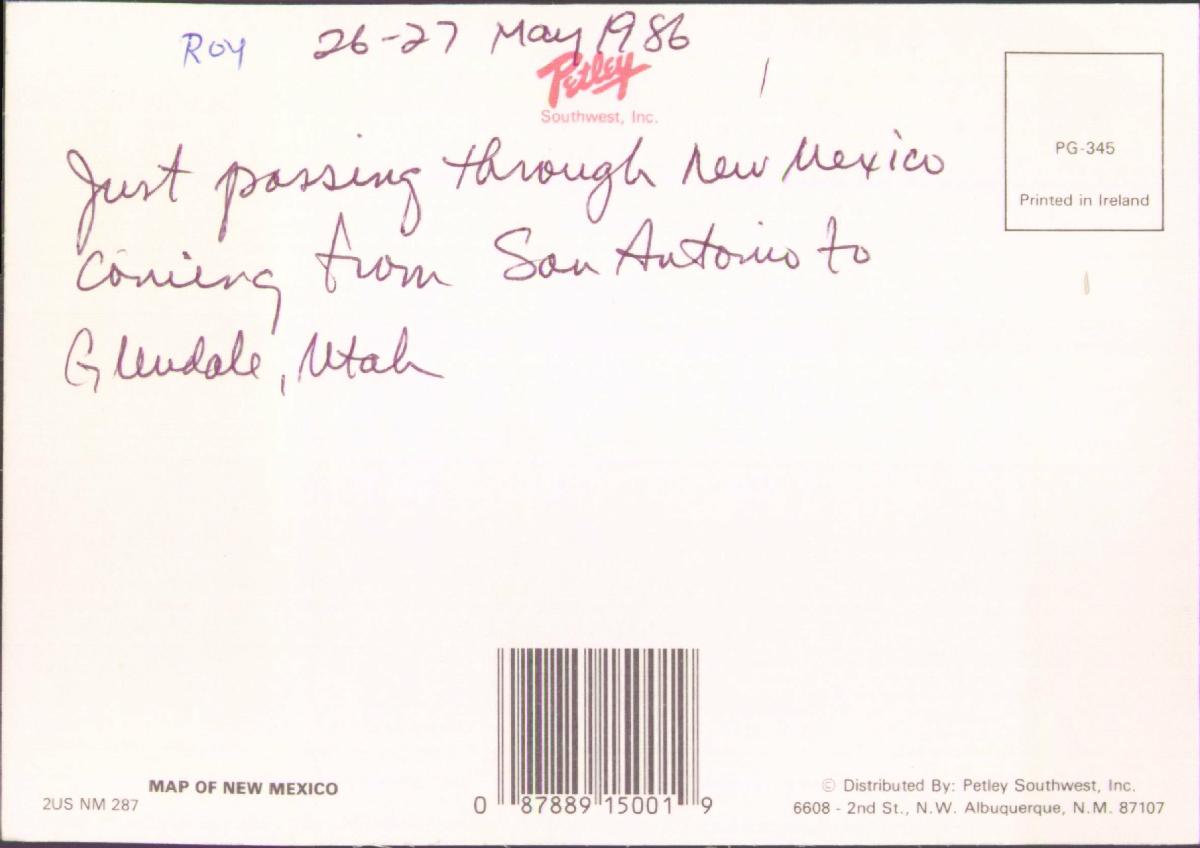 Roy 26-27 May 1986
Petley
Southwest, Inc.
PG-345
Printed in Ireland
Just passing through New Mexico
coming from San Antonio to
Glendale, Utah
MAP OF NEW MEXICO
2US NM 287
0 87889 15001 9
© Distributed By: Petley Southwest, Inc.
6608 - 2nd St., N.W. Albuquerque, N.M. 87107